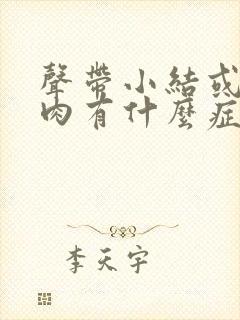 聲帶小結或
肉有什麼症
李天宇